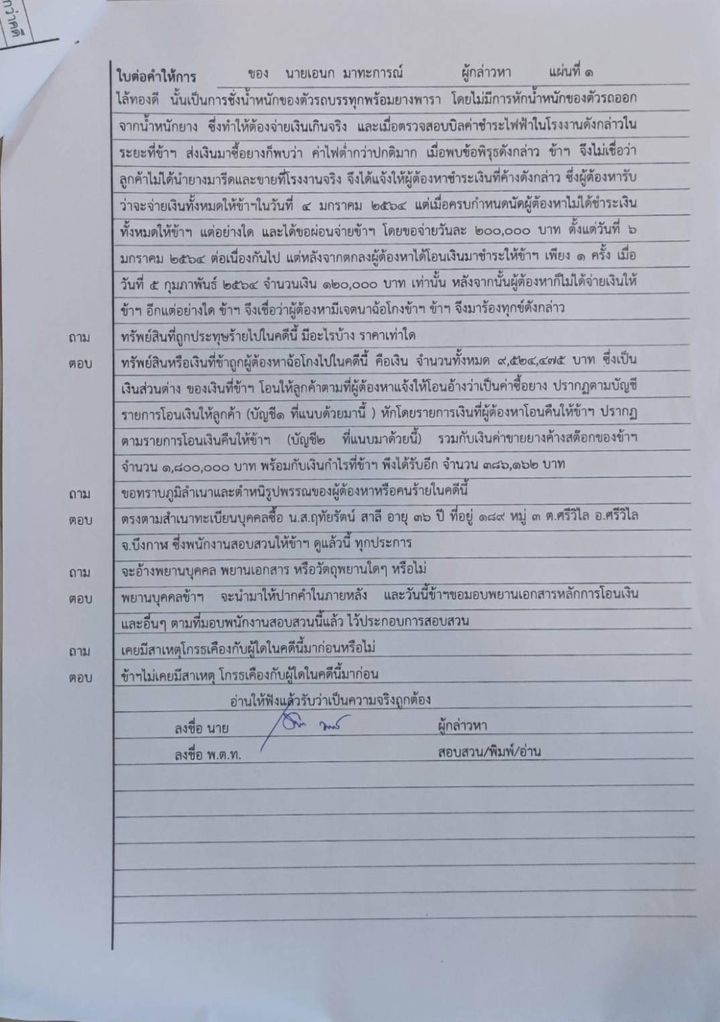 กว่าคดี
ใบต่อคำให้การ ของ นายเอนก มาทะการณ์ ผู้กล่าวหา แผ่นที่ ๑
ไล้ทองดี นั้นเป็นการชั่งน้ำหนักของตัวรถบรรทุกพร้อมยางพารา โดยไม่มีการหักน้ำหนักของตัวรถออก
จากน้ำหนักยาง ซึ่งทำให้ต้องจ่ายเงินเกินจริง และเมื่อตรวจสอบบิลค่าชำระไฟฟ้าในโรงงานดังกล่าวใน
ระยะที่ข้าฯ ส่งเงินมาซื้อยางก็พบว่า ค่าไฟต่ำกว่าปกติมาก เมื่อพบข้อพิรุธดังกล่าว ข้าฯ จึงไม่เชื่อว่า
ลูกค้าไม่ได้นำยางมารีดและขายที่โรงงานจริง จึงได้แจ้งให้ผู้ต้องหาชำระเงินที่ค้างดังกล่าว ซึ่งผู้ต้องหารับ
ว่าจะจ่ายเงินทั้งหมดให้ข้าฯในวันที่ ๔ มกราคม ๒๕๖๔ แต่เมื่อครบกำหนดนัดผู้ต้องหาไม่ได้ชำระเงิน
ทั้งหมดให้ข้าฯ แต่อย่างใด และได้ขอผ่อนจ่ายข้าฯ โดยขอจ่ายวันละ ๒๐๐,๐๐๐ บาท ตั้งแต่วันที่ ๖
มกราคม ๒๕๖๔ ต่อเนื่องกันไป แต่หลังจากตกลงผู้ต้องหาได้โอนเงินมาชำระให้ข้าฯ เพียง ๑ ครั้ง เมื่อ
วันที่ ๕ กุมภาพันธ์ ๒๕๖๔ จำนวนเงิน ๑๒๐,๐๐๐ บาท เท่านั้น หลังจากนั้นผู้ต้องหาก็ไม่ได้จ่ายเงินให้
ข้าฯ อีกแต่อย่างใด ข้าฯ จึงเชื่อว่าผู้ต้องหามีเจตนาฉ้อโกงข้าฯ ข้าฯ จึงมาร้องทุกข์ดังกล่าว
ถาม ทรัพย์สินที่ถูกประทุษร้ายไปในคดีนี้ มีอะไรบ้าง ราคาเท่าใด
ตอบ ทรัพย์สินหรือเงินที่ข้าถูกผู้ต้องหาฉ้อโกงไปในคดีนี้ คือเงิน จำนวนทั้งหมด ๙,๕๒๔,๔๗๕ บาท ซึ่งเป็น
เงินส่วนต่าง ของเงินที่ข้าฯ โอนให้ลูกค้าตามที่ผู้ต้องหาแจ้งให้โอนอ้างว่าเป็นค่าซื้อยาง ปรากฏตามบัญชี
รายการโอนเงินให้ลูกค้า (บัญชี๑ ที่แนบด้วยมานี้ ) หักโดยรายการเงินที่ผู้ต้องหาโอนคืนให้ข้าฯ ปรากฏ
ตามรายการโอนเงินคืนให้ข้าฯ (บัญชี๒ ที่แนบมาด้วยนี้) รวมกับเงินค่าขายยางค้างสต๊อกของข้าฯ
จำนวน ๑,๘๐๐,๐๐๐ บาท พร้อมกับเงินกำไรที่ข้าฯ พึงได้รับอีก จำนวน ๓๘๖,๑๖๒ บาท
ถาม ขอทราบภูมิลำเนาและตำหนิรูปพรรณของผู้ต้องหาหรือคนร้ายในคดีนี้
ตอบ ตรงตามสำเนาทะเบียนบุคคลชื่อ น.ส.ฤทัยรัตน์ สาลี อายุ ๓๖ ปี ที่อยู่ ๑๘๙ หมู่ ๓ ต.ศรีวิไล อ.ศรีวิไล
จ.บึงกาฬ ซึ่งพนักงานสอบสวนให้ข้าฯ ดูแล้วนี้ ทุกประการ
ถาม จะอ้างพยานบุคคล พยานเอกสาร หรือวัตถุพยานใดๆ หรือไม่
ตอบ พยานบุคคลข้าฯ จะนำมาให้ปากคำในภายหลัง และวันนี้ข้าฯขอมอบพยานเอกสารหลักการโอนเงิน
และอื่นๆ ตามที่มอบพนักงานสอบสวนนี้แล้ว ไว้ประกอบการสอบสวน
ถาม เคยมีสาเหตุโกรธเคืองกับผู้ใดในคดีนี้มาก่อนหรือไม่
ตอบ ข้าฯไม่เคยมีสาเหตุ โกรธเคืองกับผู้ใดในคดีนี้มาก่อน
อ่านให้ฟังแล้วรับว่าเป็นความจริงถูกต้อง
ลงชื่อ นาย ผู้กล่าวหา
ลงชื่อ พ.ต.ท. สอบสวน/พิมพ์/อ่าน